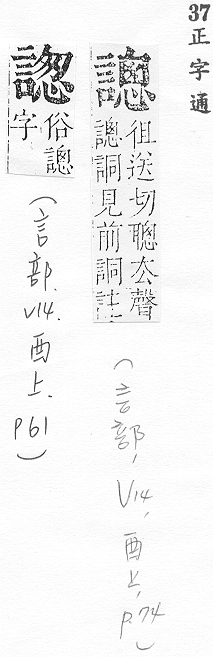 37 正字通
謥
徂送切聰去聲
謥詷見前詷註
(言部, V14, 酉上, p.74)
𧫡
俗謥
字
(言部. V14. 酉上. P61)